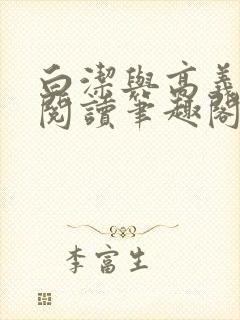 白潔與高義
閱讀筆趣閣
李富生